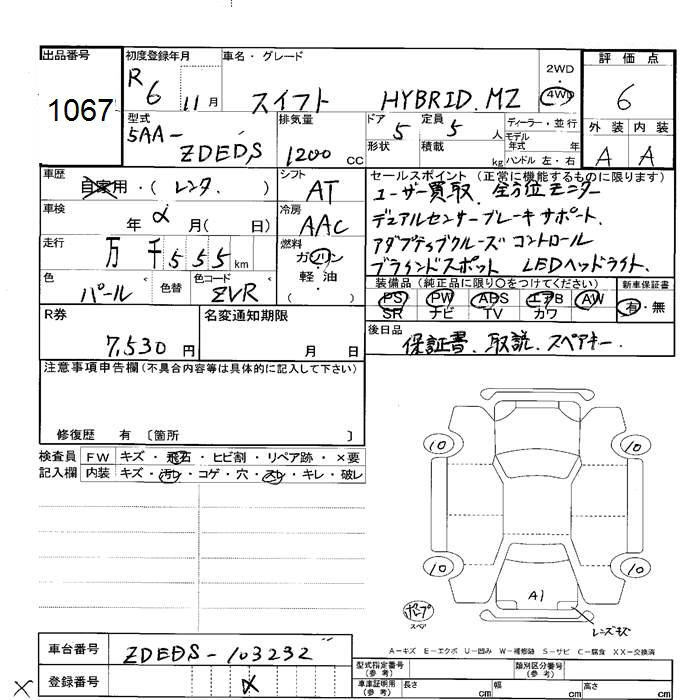 出品番号
1067
初度登録年月
R6 11月
車名・グレード
スイフト HYBRID MZ
2WD
・
4WD
評価点
6
型式
5AA-
ZDEDS
排気量
1200 CC
ドア
5
定員
5 人
形状
積載
kg
ディーラー・並行
モデル
年式 年
ハンドル 左・右
外装 内装
A A
車歴
自家用・( レンタ )
シフト
AT
車検
年 月( 日)
冷房
AAC
走行
万 千 555 km
燃料
ガソリン
軽油
( ・ )
色
パール
色替
色コード
ZVR
セールスポイント (正常に機能するものに限ります)
ユーザー買取. 全方位モニター
デュアルセンサーブレーキサポート.
アダプティブクルーズコントロール
ブラインドスポット LEDヘッドライト.
装備品(純正品に限り○をつけてください)
PS PW ABS エアB AW
SR ナビ TV カワ
新車保証書
有・無
R券
7,530 円
名変通知期限
月 日
後日品
保証書. 取説. スペアキー.
注意事項申告欄(不具合内容等は具体的に記入して下さい)
修復歴 有 〔箇所 〕
検査員 FW キズ・飛石・ヒビ割・リペア跡・×要
記入欄 内装 キズ・汚レ・コゲ・穴・スレ・キレ・破レ
10 10
10 10
A1
スペア
レンズキズ
A-キズ E-エクボ U-凹み W-補修跡 S-サビ C-腐食 XX-交換済
車台番号
ZDEDS-103232
登録番号
×
×
型式指定番号
(参考)
類別区分番号
(参考)
車庫証明用
(参考)
長さ cm 幅 cm 高さ cm